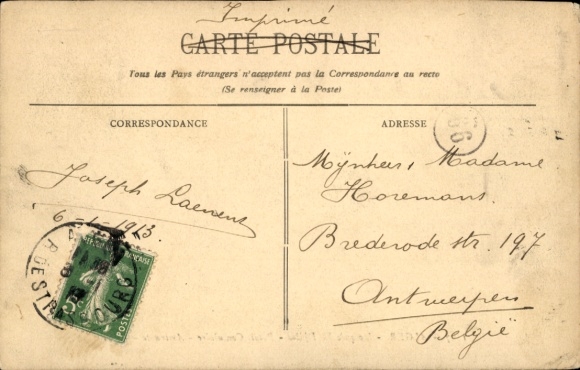 Imprimé
CARTE POSTALE
Tous les Pays étrangers n'acceptent pas la Correspondance au recto
(Se renseigner à la Poste)
CORRESPONDANCE
Joseph Laenens
6-1-1913.
ADRESSE
Mÿnheer, Madame
Horemans.
Brederode str. 197
Antwerpen
België